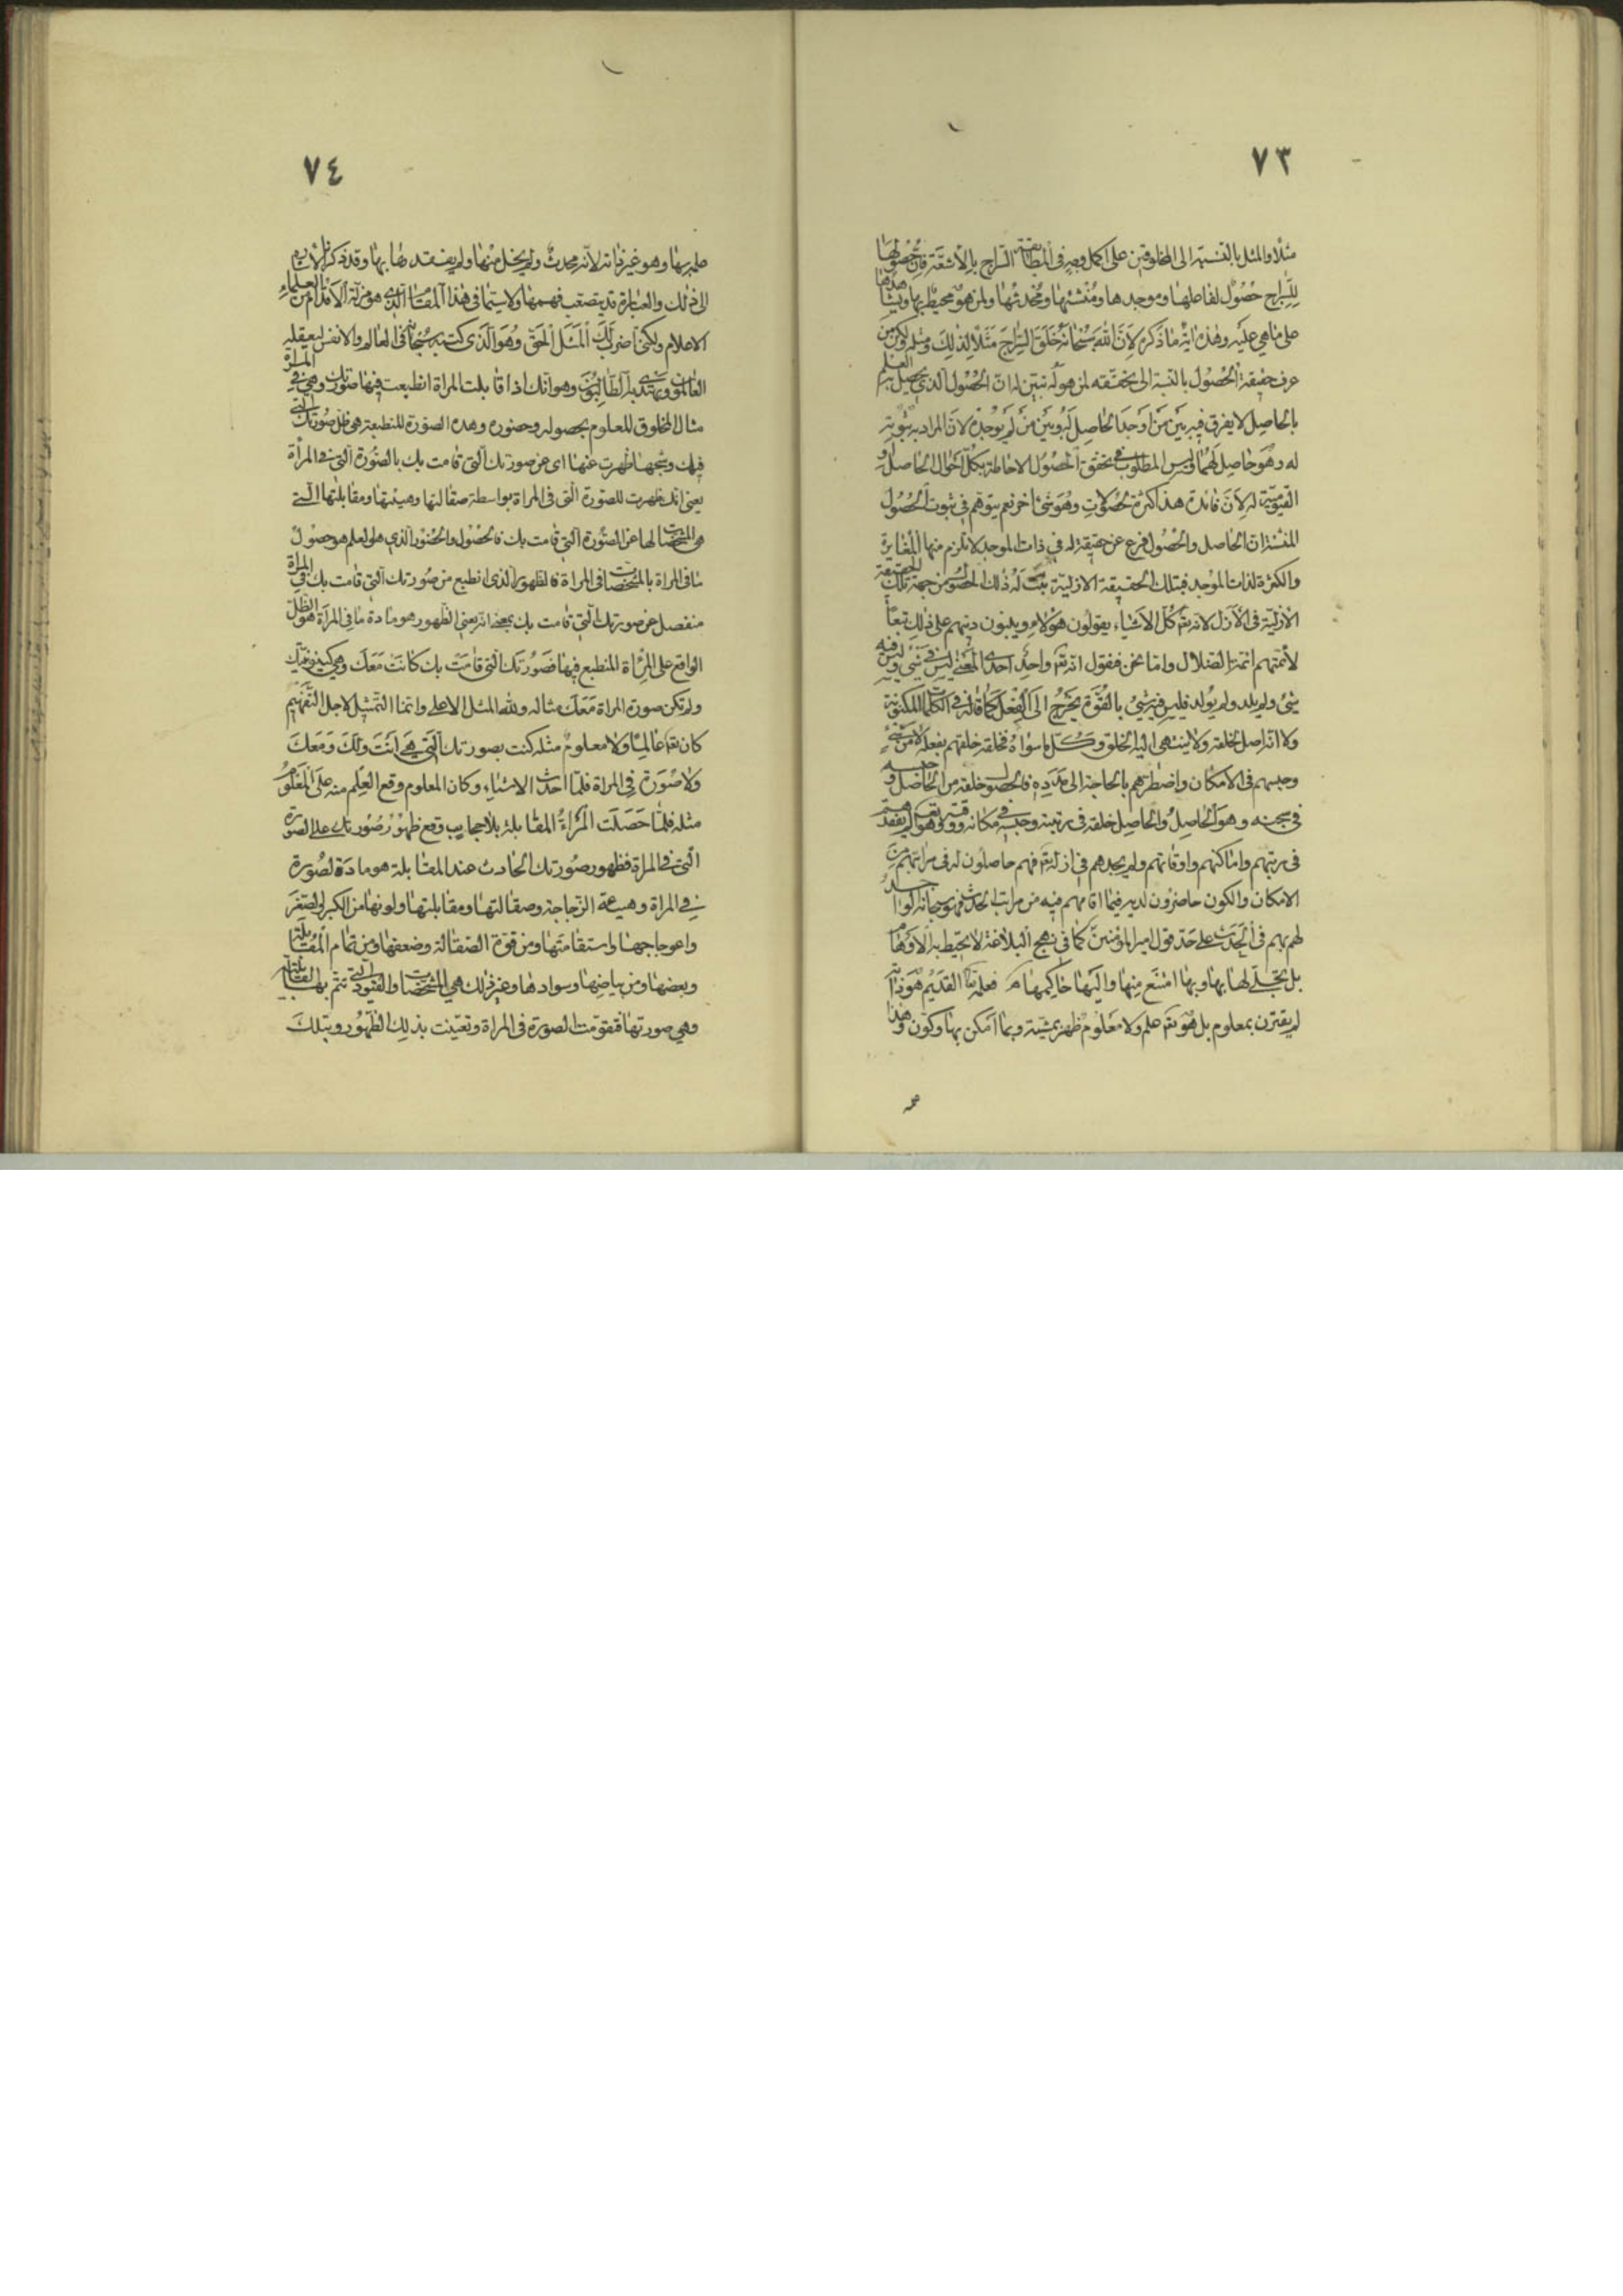 ٧٣
مثلا والمثل بالنسبة الى المخلوقين على اكمل وجه في المطابقة السراج بالأشعة فان حصولها
للسراج حصول لفاعلها وموجدها ومنشئها ومحدثها ولمن هو محيط بها ويشاهدها
على ما هي عليه وهذه اية ما ذكر لأن الله سبحانه خلق السراج مثلا لذلك ومثله ولكن من
عرف حقيقة الحصول بالنسبة الى تحققه لمن هو له تبين له ان الحصول الذي يحصل به العلم
بالحاصل لا يفرق فيه بين من أوجد الحاصل له وبين من لم يوجده لان المراد به ثبوته
له وهو حاصل لهما وليس المطلوب في تحقق الحصول الاحاطة بكل احوال الحاصل و
القيومية له لأن فائدة هذا كثرة الحصولات وهو شئ اخر نعم يتوهم في ثبوت الحصول
ان الحاصل والحصول فرع عن حقيقة له في ذات الموجد لا تلزم منها المغايرة
والكثرة لذات الموجد فبتلك الحقيقة الازلية ثبت له ذلك الحصول من جهة تلك الحقيقة
الازلية في الأزل لانه تع كل الاشياء يقولون هؤلاء ويبنون دينهم على ذلك تبعا
لأئمتهم ائمة الضلال واما نحن فنقول انه تع واحد احدي المعنى ليس في شئ وليس فيه
شئ ولم يلد ولم يولد فليس فيه شئ بالقوة يخرج الى الفعل كما قاله في الكلمات المكنونة
ولا انه اصل لخلقه ولا ينتهي اليه الخلق وكل ما سواه فخلقه خلقهم بفعله لا من شئ
وحبسهم في الامكان واضطرهم بالحاجة الى مدده فالحصول خلقه من الحاصل وحبسه
في سجنه وهو الحاصل والحاصل خلقه في رتبته وحبسه في مكانه ووقته وهو تع لم يفقدهم
في رتبهم واماكنهم واوقاتهم ولم يجدهم في ازليته فهم حاصلون له في مراتبهم من
الامكان والكون حاضرون لديه فيما اقامهم فيه من مراتب الحدث فهو سبحانه
لهم بهم في الحدث على حد قول امير المؤمنين كما في نهج البلاغة لا تحيط به الأوهام
بل تجلى لها بها وبها امتنع منها واليها حاكمها فعلمه تع القديم هو ذاته
لم يقترن بمعلوم بل هو تع علم ولا معلوم ظهر بمشيته وبما امكن بها وكون وهذا
٧٤
علمه بها وهو غير ذاته لانه محدث ولم يخل منها ولم يفقدها بها وقد ذكرنا
الى ذلك والعبارة قد يصعب فهمها ولا سيما في هذا المقام الذي هو مزلة الأقدام من العلماء
الاعلام ولكني أضرب لك المثل الحق وهو الذي كتبه سبحانه في العالم والانفس ليعقله
العالمون ويهتدي به الطالبون وهو انك اذا قابلت المراة انطبعت فيها صورتك وهي في المراة
مثال المخلوق المعلوم بحصوله وحضوره وهذه الصورة المنطبعة هي ظل صورتك التي
فيك وشبحها ظهرت عنها اى عن صورتك التي قامت بك بالصورة التي في المرأة
يعني انك ظهرت للصورة التي في المراة بواسطة صقالتها وهيئتها ومقابلتها التي
هي المشخصات لها عن الصورة التي قامت بك فالحصول والحضور الذي هو العلم هو حصول
ما في المراة بالمشخصات في المراة فالظهور الذى انطبع من صورتك التي قامت بك في المراة
منفصل عن صورتك التي قامت بك بمعنى انه يعني الظهور هو مادة ما في المرآة هو الظل
الواقع على المرأة المنطبع فيها فصورتك التي قامت بك كانت معك وهي كينونتك
ولم تكن صورة المراة معك مثاله ولله المثل الاعلى وانما التمثيل لاجل التفهيم
كان تع عالما ولا معلوم مثله كنت بصورتك التي هي انت ولك ومعك
ولا صورة في المراة فلما احدث الاشياء وكان المعلوم وقع العلم منه على المعلوم
مثله فلما حصلت المرآة المقابلة بلا حجاب وقع ظهور صورتك على الصورة
التي في المراة فظهور صورتك الحادث عند المقابلة هو مادة لصورة
في المراة وهيئة الزجاجة وصقالتها ومقابلتها ولونها من الكبر والصغر
واعوجاجها واستقامتها ومن قوة الصقالة وضعفها ومن تمام المقابلة
وبعضها ومن بياضها وسوادها وغير ذلك هي المشخصات والقيود التي تتم بها القابلية
وهي صورتها فتقومت الصورة في المراة وتعينت بذلك الظهور وبتلك